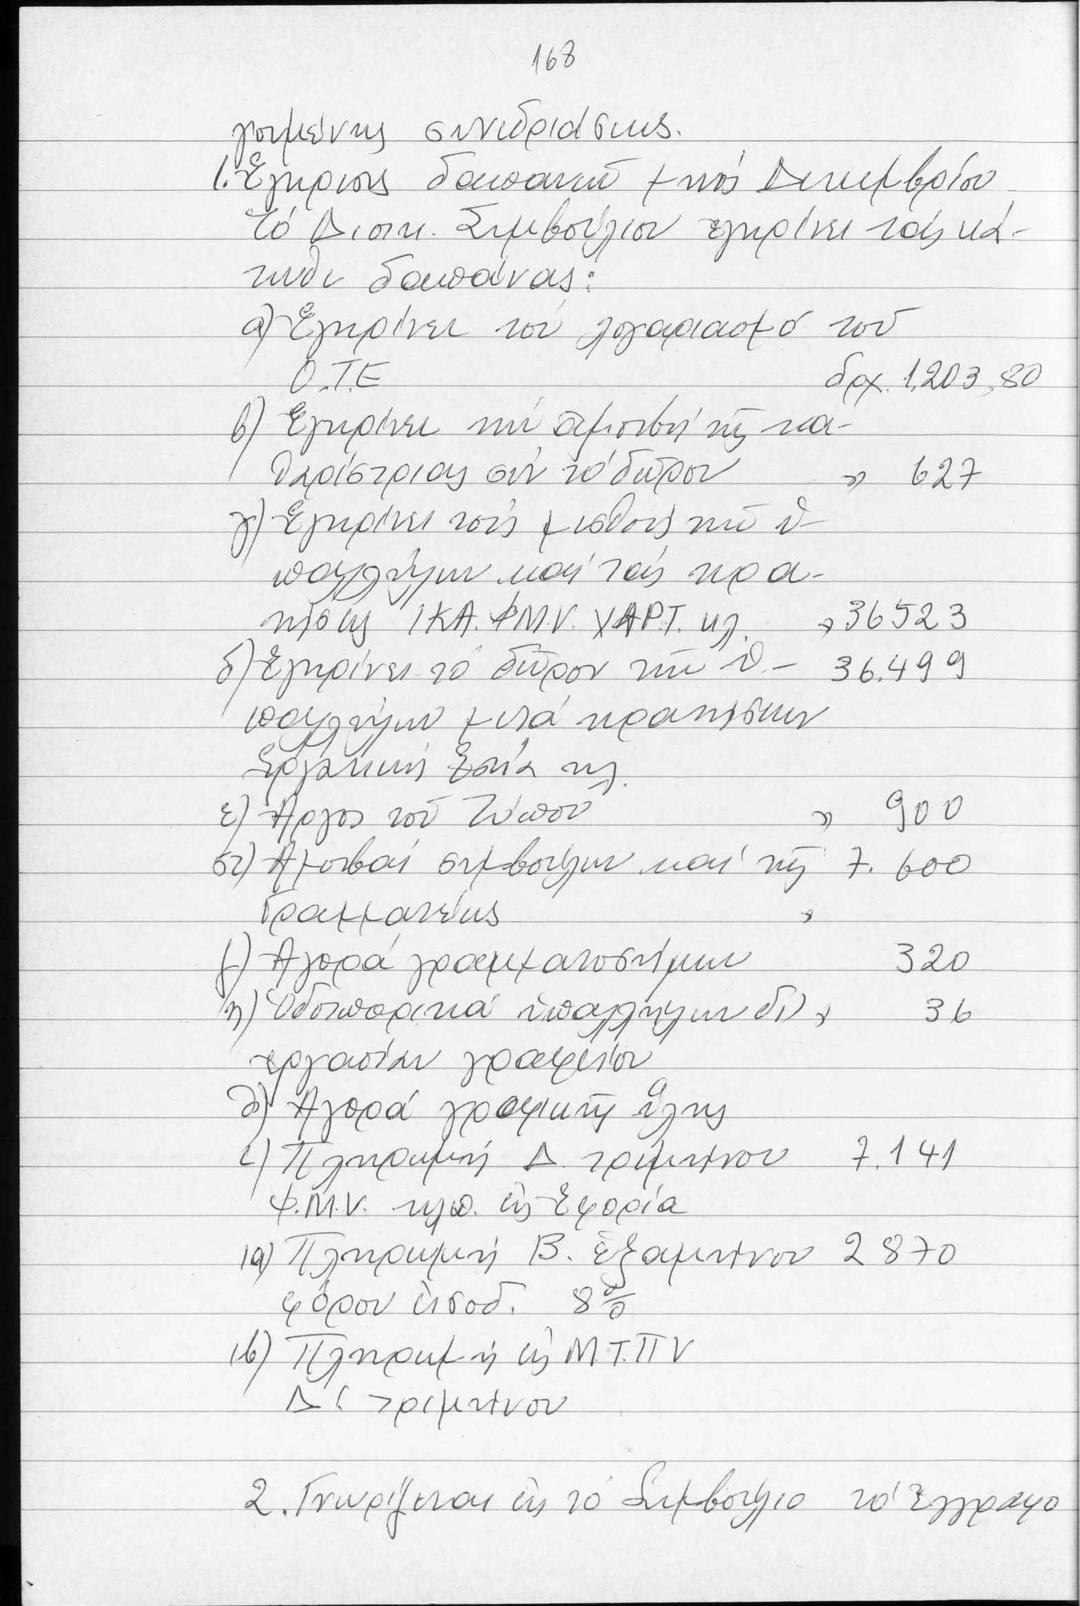 168
γουμένης συνεδριάσεως.
1. Έγκρισις δαπανῶν μηνός Δεκεμβρίου
Τό Διοικ. Συμβούλιον ἐγκρίνει τάς κά-
τωθι δαπάνας:
α) Ἐγκρίνει τόν λογαριασμό τοῦ
Ο.Τ.Ε δρχ. 1,203,80
β) Ἐγκρίνει τήν ἀμοιβή τῆς κα-
θαρίστριας σύν τό δῶρον " 627
γ) Ἐγκρίνει τούς μισθούς τῶν ὑ-
παλλήλων καί τάς κρα-
τήσεις ΙΚΑ. Φ.Μ.Υ. ΧΑΡΤ. κλ. " 36523
δ) Ἐγκρίνει τό δῶρον τῶν ὑ- 36.499
παλλήλων μετά κρατήσεων
Ἐργατική Ἑστία κλ.
ε) Άργος τοῦ Τύπου " 900
στ) Ἀμοιβαί συμβούλων καί τῆς 7.600
Γραμματέως "
ζ) Ἀγορά γραμματοσήμων 320
η) Ὁδοιπορικά ὑπαλλήλων δι' " 36
ἐργασίαν γραφείου
θ) Ἀγορά γραφικῆς ὕλης
ι) Πληρωμή Δ. τριμήνου 7.141
Φ.Μ.Υ. κλπ. εἰς Ἐφορία
ια) Πληρωμή Β. ἑξαμήνου 2870
φόρου εἰσοδ. 8%
ιβ) Πληρωμή εἰς Μ.Τ.Π.Υ
Δ! τριμήνου
2. Γνωρίζεται εἰς τό Συμβούλιο τό ἔγγραφο